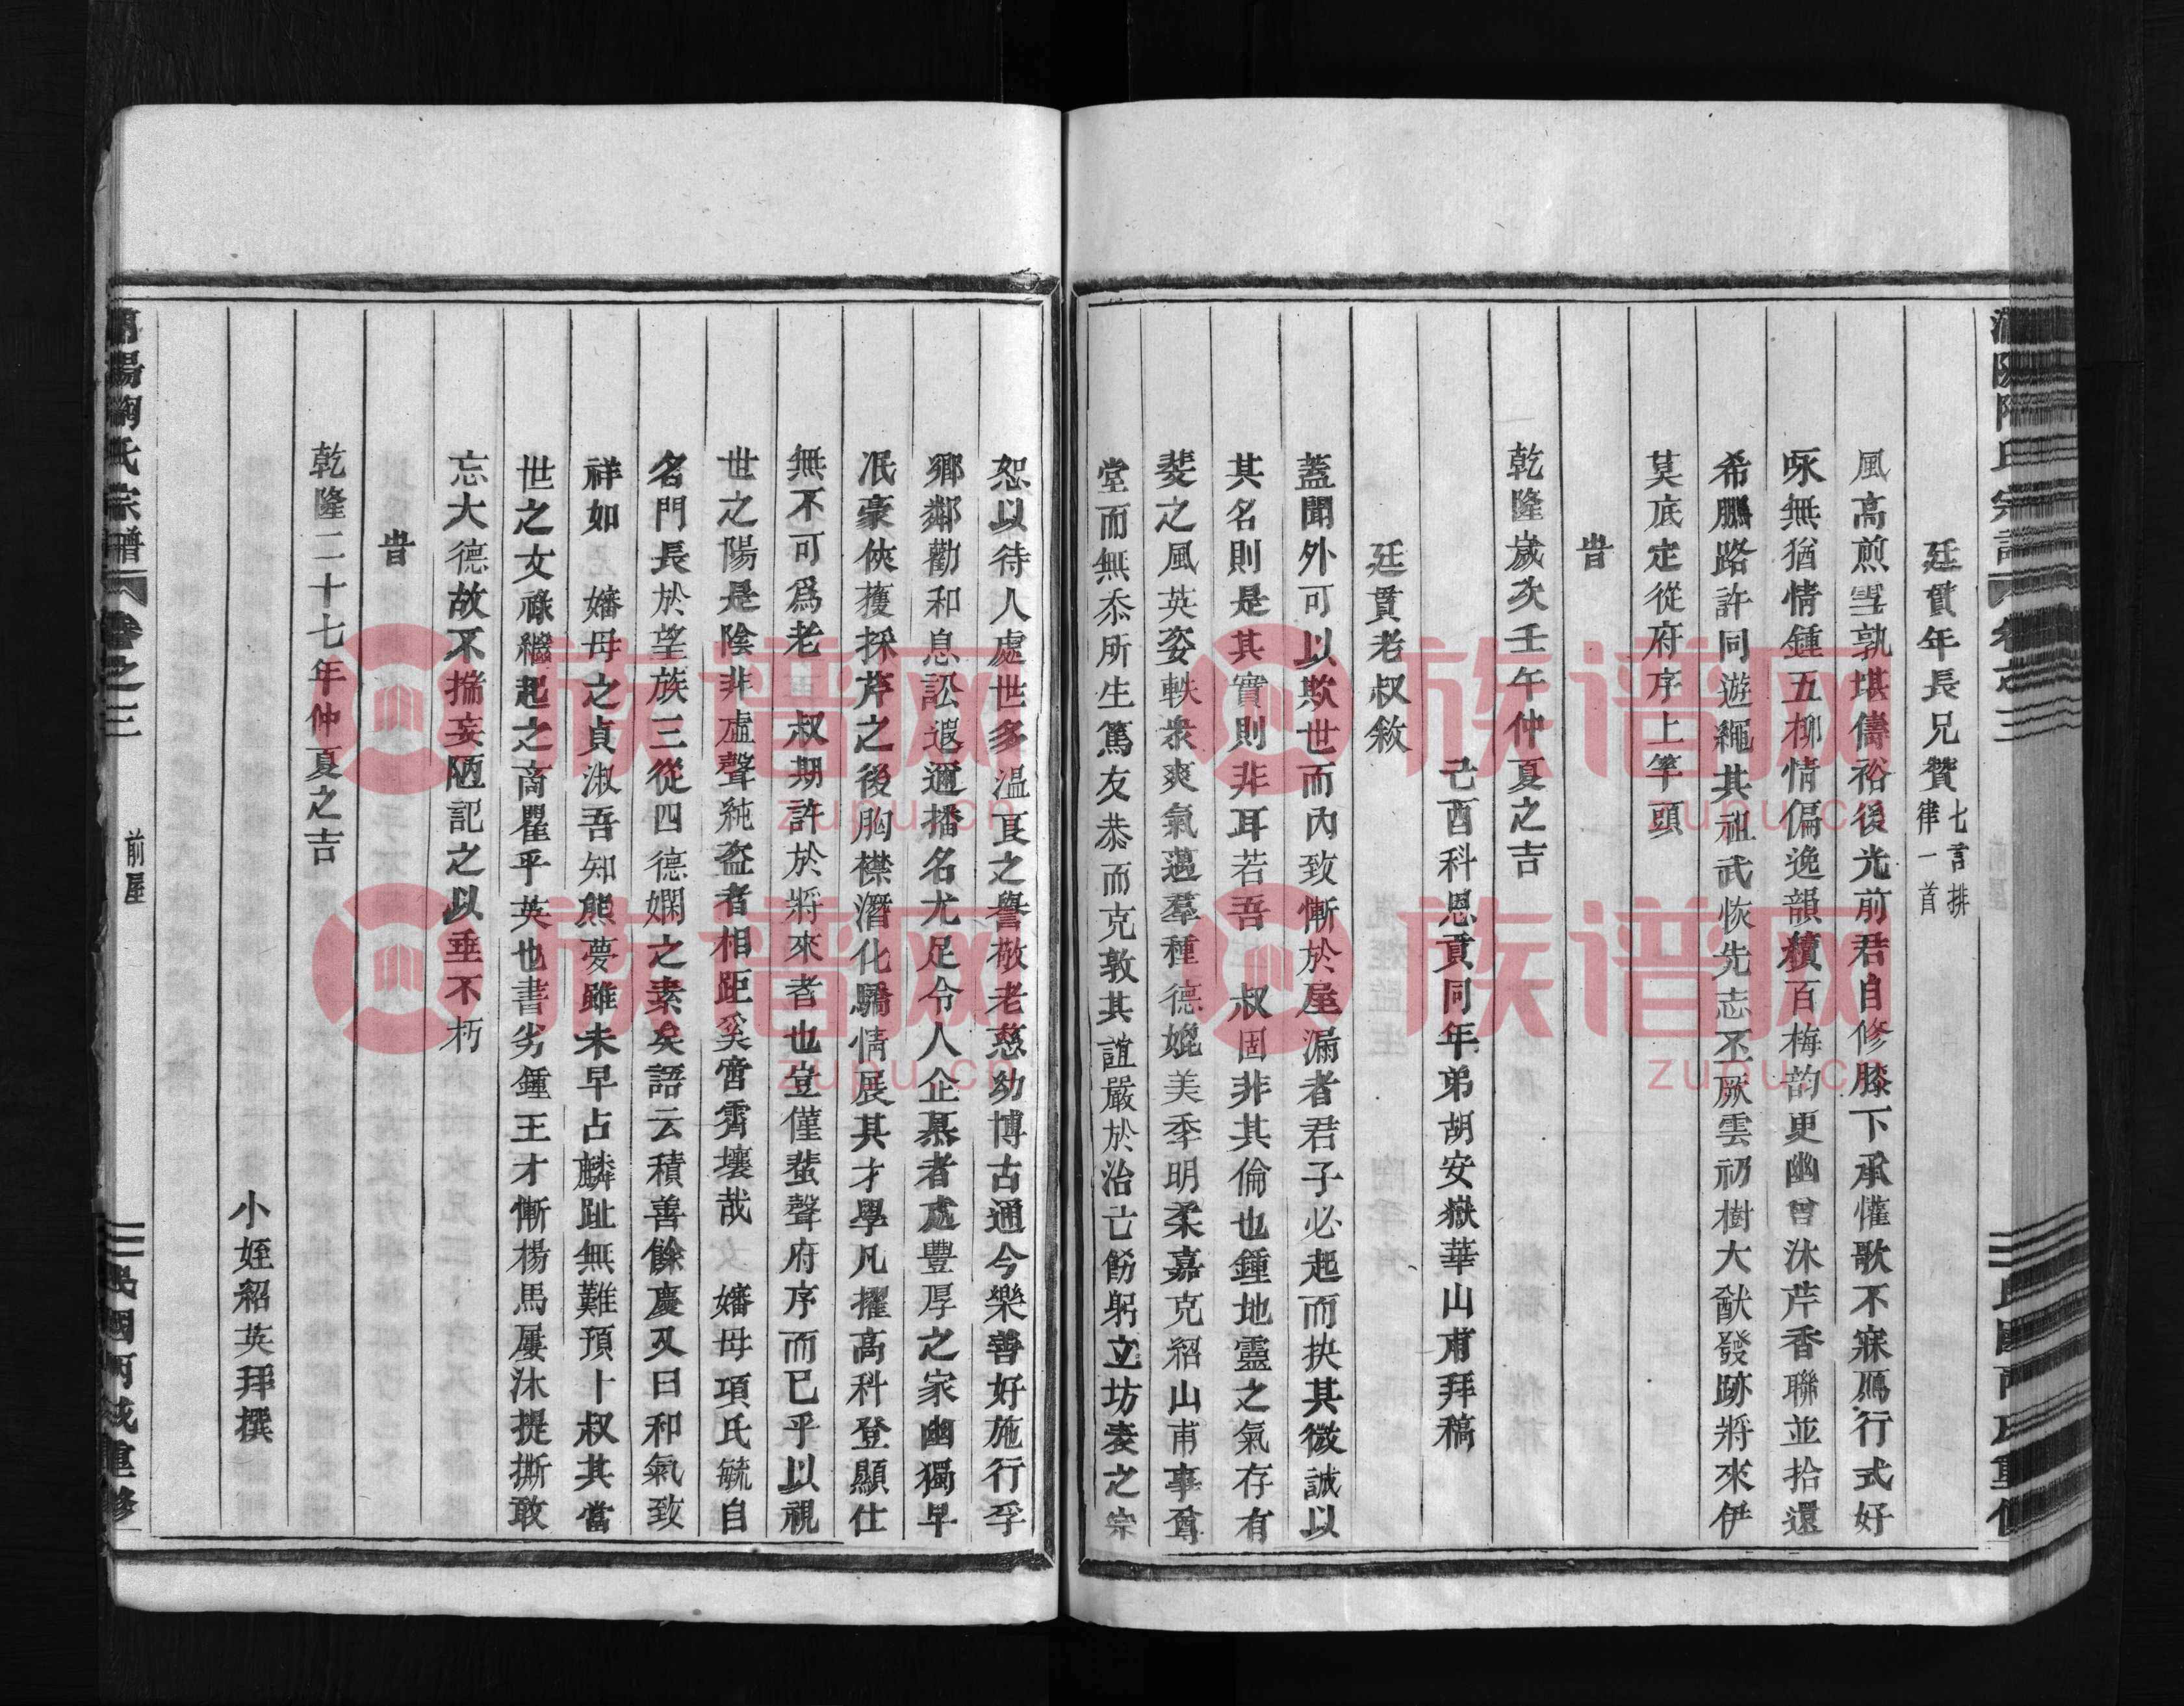 廷貫年長兄贊七言排律一首
風高煎雪孰堪儔裕後光前君自修膝下承懽歌不寐鴈行式好
咏無猶情鍾五柳情偏逸韻積百梅韵更幽曾沐芹香聯並拾還
希鵬路許同遊繩其祖武恢先志不厥雲礽樹大猷發跡將來伊
莫底定從府序上竿頭
旹
乾隆歲次壬午仲夏之吉
己酉科恩貢同年弟胡安嶽華山甫拜稿
廷貫老叔敘
蓋聞外可以欺世而內致慚於屋漏者君子必起而抉其微誠以
其名則是其實則非耳若吾 叔固非其倫也鍾地靈之氣存有
斐之風英姿軼衆爽氣邁羣種德媲美季明柔嘉克紹山甫事尊
堂而無忝所生篤友恭而克敦其誼嚴於治亡飭躬立坊凌之宗
恕以待人處世多溫良之譽敬老慈幼博古通今樂善好施行孚
鄉鄰勸和息訟遐邇播名尤足令人企慕者處豐厚之家幽獨早
泯豪俠獲採芹之後胸襟潛化驕情展其才學凡擢高科登顯仕
無不可為老 叔期許於將來者也豈僅蜚聲府序而已乎以視
世之陽是陰非虛聲純盜者相距奚啻霄壤哉 嬸母項氏毓自
名門長於望族三從四德嫻之素矣語云積善餘慶又曰和氣致
祥如 嬸母之貞淑吾知熊夢雖未早占麟趾無難預卜叔其當
世之文祿繼起之商瞿乎英也書劣鍾王才慚楊馬屢沐提撕敢
忘大德故不揣妄陋記之以垂不朽
旹
乾隆二十七年仲夏之吉
小姪紹英拜撰
氏宗譜 卷之三 前屋 民國丙戌重修
族谱网
zupu.cn
族谱网
zupu.cn
族谱网
zupu.cn
族谱网
zupu.cn